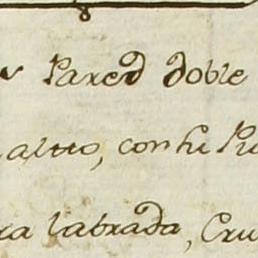 Pared doble
altto, con su
ra labrada, Cru